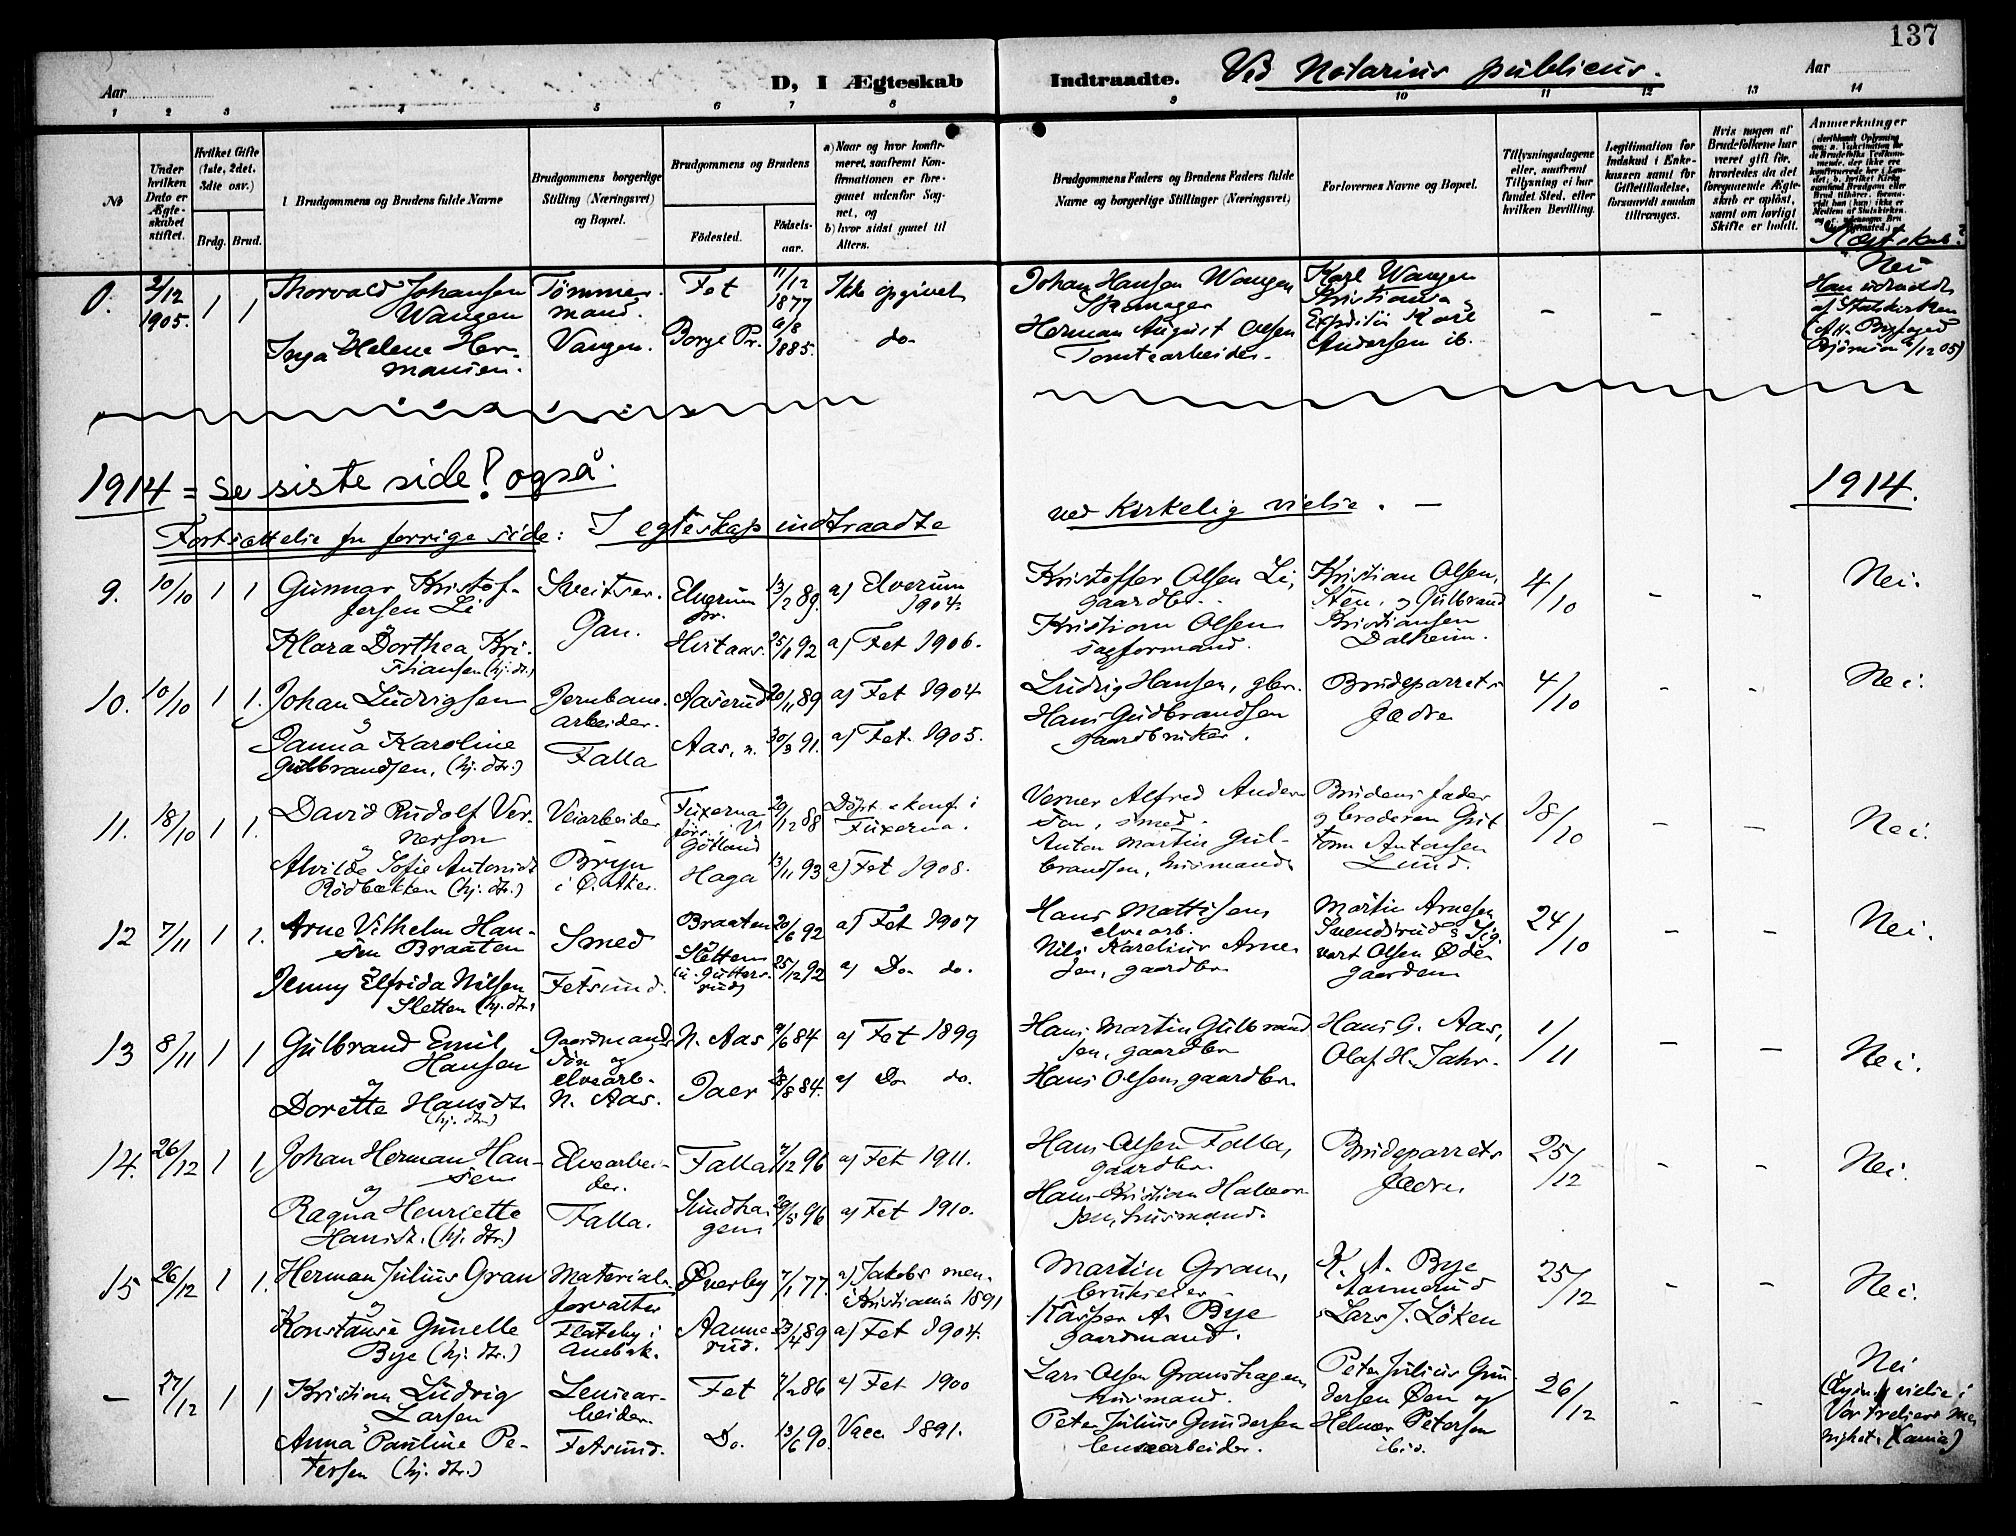 137
Aar
D, I Ægteskab
Indtraadte.
Ved Notarius publicus.
Aar
1 2 3 4 5 6 7 8
9 10 11 12 13 14
№
Under hvilken Dato er Ægteskabet stiftet.
Hvilket Gifte (1ste, 2det, 3dte osv.)
Brdg.
Brud.
Brudgommens og Brudens fulde Navne
Brudgommens borgerlige Stilling (Næringsvei) og Bopæl.
Brudgommens og Brudens
Fødested.
Fødselsaar.
a) Naar og hvor konfirmeret, saafremt Konfirmationen er foregaaet udenfor Sognet, og
b) hvor sidst gaaet til Alters.
Brudgommens Faders og Brudens Faders fulde Navne og borgerlige Stillinger (Næringsvei)
Forlovernes Navne og Bopæl.
Tillysningsdagene eller, saafremt Tillysning ei har fundet Sted, efter hvilken Bevilling.
Legitimation for Indskud i Enkekassen samt for Giftetilladelse, forsaavidt saadan tiltrænges.
Hvis nogen af Brudefolkene har været gift før, hvorledes da det foregaaende Ægteskab er opløst, samt om lovligt Skifte er holdt.
Anmerkninger
0.
2/12 1905.
1 1
Thorvald Johansen Wangen
Inga Helene Hermansen.
Tømmermand.
Vangen.
Fet
Borge Pr.
11/12 1877
9/8 1885.
Ikke opgivet
do
Johan Hansen Wangen
Herman August Olsen
Tomtearbeider.
Karl Wangen
Kristiania
Expeditør Karl
Andersen ib.
- -
Nei
Han udtraadt
af Statskirken
1914 = se siste side! også.
1914.
Fortsættelse fra forrige side: I egteskap indtraadte
ved kirkelig vielse. —
9. 10/10 1 1
Gunnar Kristoffersen Li
Klara Dorthea Kristiansen (hj. dtr.)
Sveitser.
Gan.
Elverum pr.
13/2 89
25/8 92
a) Elverum 1904.
a) Fet 1906.
Kristoffer Olsen Li,
gaardbr.
Kristian Olsen
sagformand.
Kristian Olsen,
Sten, og Gulbrand
Kristiansen
Dalheim.
4/10
- -
Nei.
10. 10/10 1 1.
Johan Ludvigsen
og
Janna Karoline
Gulbrandsen, (hj. dtr.)
Jernbanearbeider.
Falla
Aaserud
Aas, n.
20/11 89
30/3 91.
a) Fet 1904
a) Fet. 1905.
Ludvig Hansen, gbr.
Hans Gudbrandsen
gaardbruker.
Brudeparrets
fædre
4/10
- -
Nei.
11. 18/10 1 1.
David Rudolf Vernersson
og
Alvilde Sofie Antonsdt
Rødbækken (hj. dtr.)
Veiarbeider
Bryn
i Ø. Aker.
Fuxerna
förs. i V.
Götland
Haga
29/12 88
13/11 93
Døpt & konf. i
Fuxerna.
a) Fet 1908.
Verner Alfred Anderson, smed.
Anton Martin Gulbrandsen, husmand.
Brudens fader
og broderen Guttorm Antonsen
Lund.
18/10
- -
Nei.
12 7/11 1 1.
Arne Vilhelm Hansen Braaten
og
Jenny Elfrida Nilsen
Sletten (hj. dtr.)
Smed
Fetsund.
Braaten
Sletten
20/6 92
25/12 92
a) Fet 1907
a) Do do.
Hans Mattisen
elvearb.
Nils Karelius Arnesen, gaardbr.
Martin Arnesen
Svendsrud & Sigvart Olsen Ødegaarden
24/10
- -
Nei.
13 8/11 1 1
Gulbrand Emil
Hansen
og
Dorette Hansdt.
(hj. dtr.)
Gaardmandssøn og
elvearb.
N. Aas.
N. Aas
Jaer
9/6 84
28/8 84.
a) Fet 1899
a) Do do.
Hans Martin Gulbrandsen, gaardbr
Hans Olsen, gaardbr.
Hans G. Aas,
Olaf H. Jahr.
1/11
- -
Nei.
14. 26/12 1 1
Johan Herman Hansen
og
Ragna Henriette
Hansdt. (hj. dtr.)
Elvearbeider.
Falla.
Falla
Sundhagen
7/12 96
29/5 96
a) Fet 1911.
a) Fet 1910.
Hans Olsen Falla,
gaardbr.
Hans Kristian Halvorsen, husmand.
Brudeparrets
fædre.
25/12
- -
Nei.
15 26/12 1 1.
Herman Julius Gran
og
Konstanse Gunelle
Bye (hj. dtr.)
Materialforvalter
Flateby i
Enebak.
Øverby
Aannerud.
7/1 77.
23/4 89
a) Jakobs men.
i Kristiania 1891
a) Fet 1904.
Martin Gran,
bruksier
Kasper A. Bye
gaardmand.
K. A. Bye
Aannerud
Lars J. Löken
25/12
- -
Nei.
- 27/12 1 1
Kristian Ludvig
Larsen
og
Anna Pauline Petersen (hj. dtr.)
Lensearbeider.
Fetsund.
Fet
Do.
7/2 86
13/6 90.
a) Fet 1900
Vacc. 1891.
Lars Olsen Granshagen,
husmand.
Peter Julius Gundersen
lensearbeider.
Peter Julius Gundersen Øen og
Helmer Petersen
ibid.
26/12
- -
Nei
(Lysn. & vielse i
Vor Frelsers menighet, Krania)